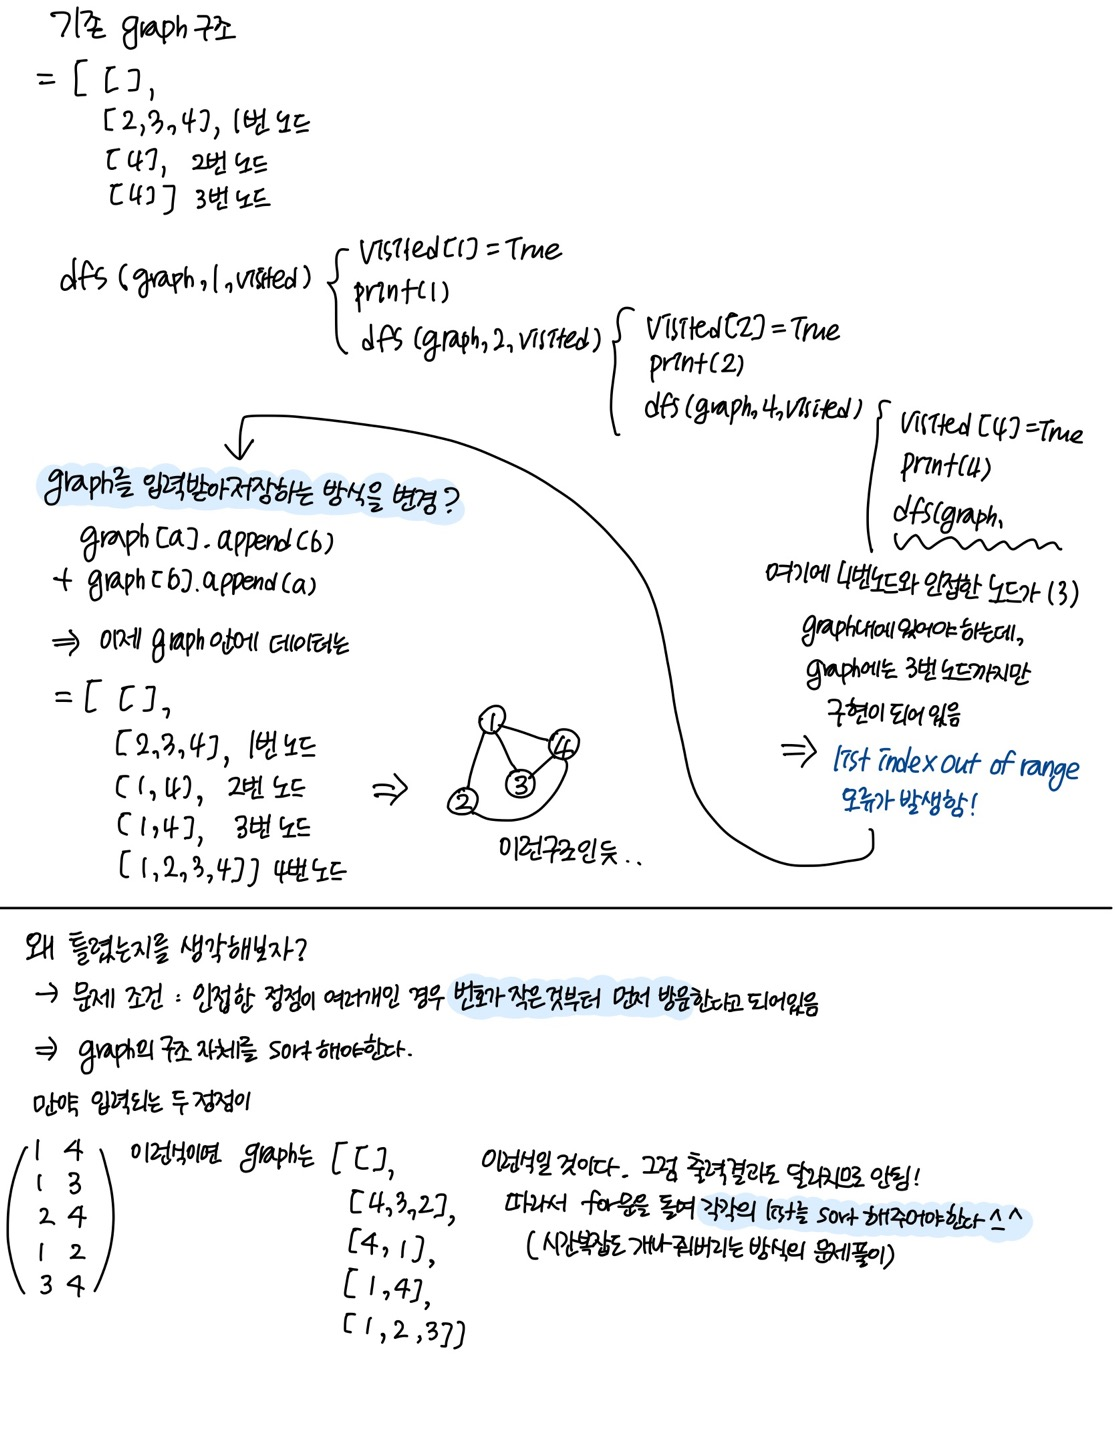 기존 graph 구조
= [ [],
[2,3,4], 1번 노드
[4], 2번 노드
[4] ] 3번 노드
dfs (graph, 1, visited)
visited[1] = True
print(1)
dfs (graph, 2, visited)
visited[2] = True
print(2)
dfs (graph, 4, visited)
visited [4] = True
print(4)
dfs(graph,
여기에 4번노드와 인접한 노드가 (3)
graph내에 있어야 하는데,
graph에는 3번 노드까지만
구현이 되어 있음
⇒ list index out of range
오류가 발생함!
graph를 입력받아 저장하는 방식을 변경?
graph [a]. append (b)
+ graph [b]. append (a)
⇒ 이제 graph 안에 데이터는
= [ [],
[2,3,4], 1번 노드
[1,4], 2번 노드
[1,4], 3번 노드
[1,2,3,4]] 4번 노드
⇒
1
4
3
2
이런구조인듯..
왜 틀렸는지를 생각해보자?
→ 문제 조건 : 인접한 정점이 여러개인 경우 번호가 작은것부터 먼저 방문한다고 되어있음
⇒ graph의 구조 자체를 sort 해야한다.
만약 입력되는 두 정점이
1 4
1 3
2 4
1 2
3 4
이런식이면 graph는 [ [],
[4,3,2],
[4,1],
[1,4],
[1,2,3]]
이런식일 것이다. 그럼 출력결과도 달라지므로 안됨!
따라서 for문을 돌며 각각의 list를 sort 해주어야한다 ^_^
(시간복잡도 개나줘버리는 방식의 문제풀이)